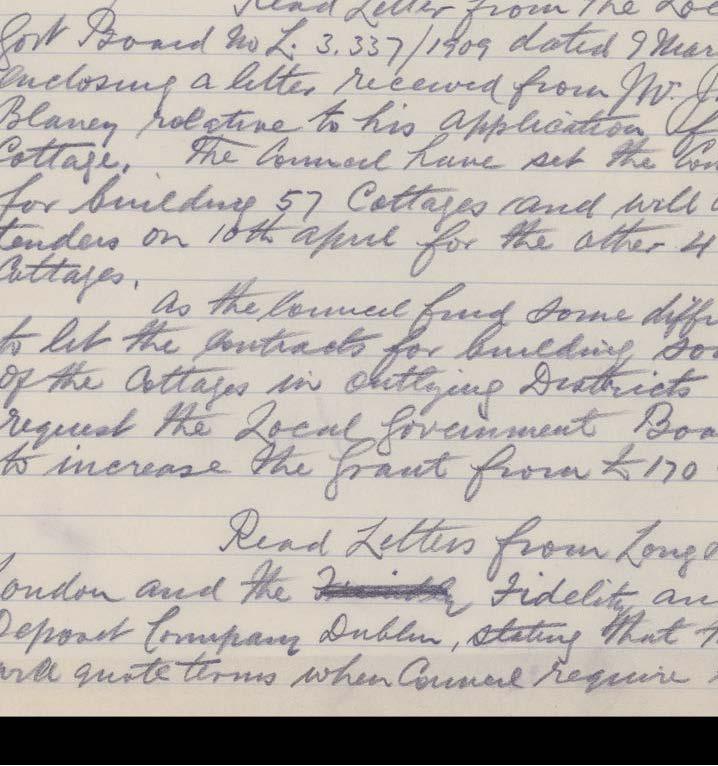 Read Letter from the Loc
Govt Board No L. 3.337/1909 dated 9 Mar
enclosing a letter received from Mr. J
Blaney relative to his application f
Cottage. The Council have set the Con
for building 57 Cottages and will
tenders on 10th April for the other 4
Cottages.
As the Council find some diffi
to let the contracts for building so
of the Cottages in outlying Districts
request the Local Government Boa
to increase the grant from £170
Read Letters from Long
London and the Fidelity an
Deposit Company Dublin, stating that t
will quote terms when Council require